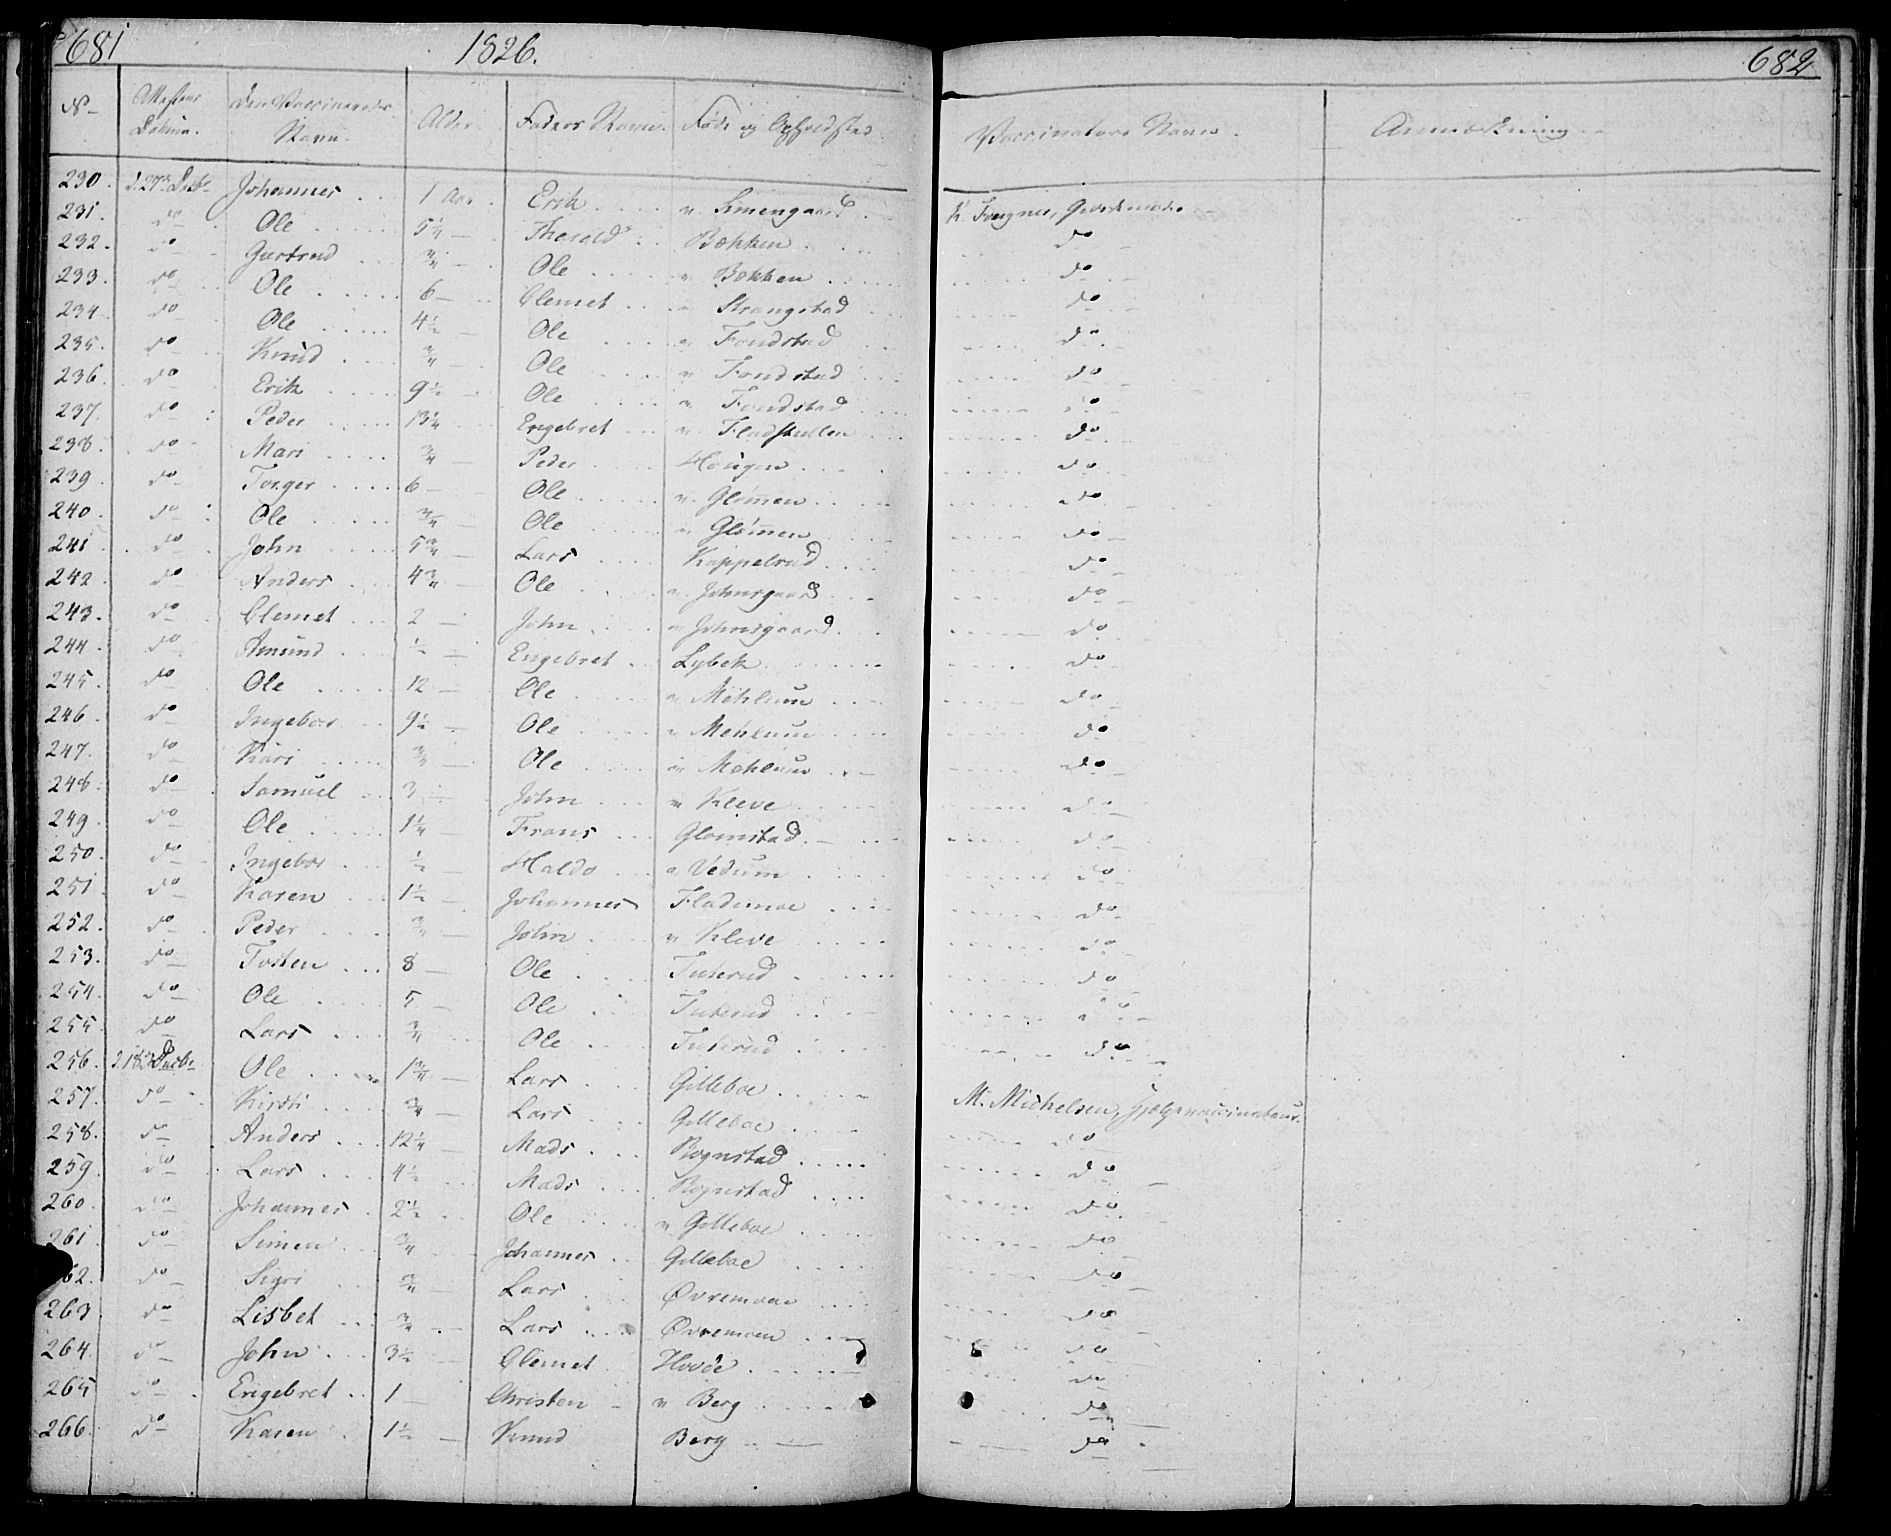 681 1826. 682
No Attestens Datum. Den Vaccineredes Navn. Alder Faders Navn. Føde og Opholdsted Vaccinateurs Navn. Anmærkning.
230. d. 27de Johannes 1 Aar. Erik " Simengaard K. Fougner,
231. do Ole 5 1/4 Tharald Bækken do
232. do Giertrud 3/4 Ole " Bækken do
233. do Ole 6 Clemet " Strangstad do
234. do Ole 4 1/2 Ole " Fondstad do
235. do Knud 3/4 Ole " Fondstad do
236. do Erik 9 1/2 Ole " Fondstad do
237. do Peder 13 1/4 Engebret " do
238. do Mari 3/4 Peder Hougen do
239. do Torger 6 Ole " Glømmen do
240. do Ole 3/4 Ole " Glømmen do
241. do John 5 3/4 Lars Kappelrud do
242. do Anders 4 3/4 Ole " Johnsgaard do
243. do Clemet 2 John " Johnsgaard do
244. do Amund 1/2 Engebret Lybek do
245. do Ole 12 Ole " Mehlum do
246. do Ingebor 9 1/2 Ole " Mehlum do
247. do Kari 3/4 Ole " Mehlum do
248. do Samuel 3 John " Kleve do
249. do Ole 1 1/4 Frans Glomstad do
250. do Ingebor 1/2 Haldo " Vedum do
251. do Karen 1 1/2 Johannes Flademoe do
252. do Peder 3/4 John " Kleve do
253. do Tosten 8 Ole Juterud do
254. do Ole 5 Ole Juterud do
255. do Lars 3/4 Ole Juterud do
256. d. 18de Ole 1 3/4 Lars Gilleboe M. Michelsen, Hjælpevaccinateur.
257. do Kirsti 3/4 Lars Gilleboe do
258. do Anders 12 1/4 Mads Rognstad do
259. do Lars 4 1/2 Mads Rognstad do
260. do Johannes 2 1/2 Ole " Gilleboe do
261. do Simen 3/4 Johannes Gilleboe do
262. do Sigri 3/4 Lars Øvremoen do
263 do Lisbet 3/4 Lars Øvremoen do
264. do John 3 1/2 Clemet Hovde do
265 do Engebret 1 Christen " Berg do
266. do Karen 1 1/2 Knud Berg do